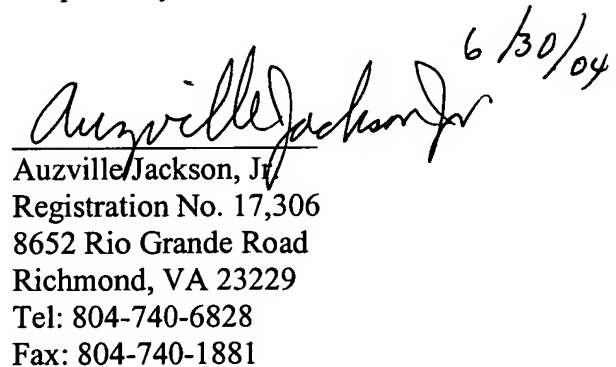 6/30/04
Auzville Jackson Jr
Auzville Jackson, Jr.
Registration No. 17,306
8652 Rio Grande Road
Richmond, VA 23229
Tel: 804-740-6828
Fax: 804-740-1881